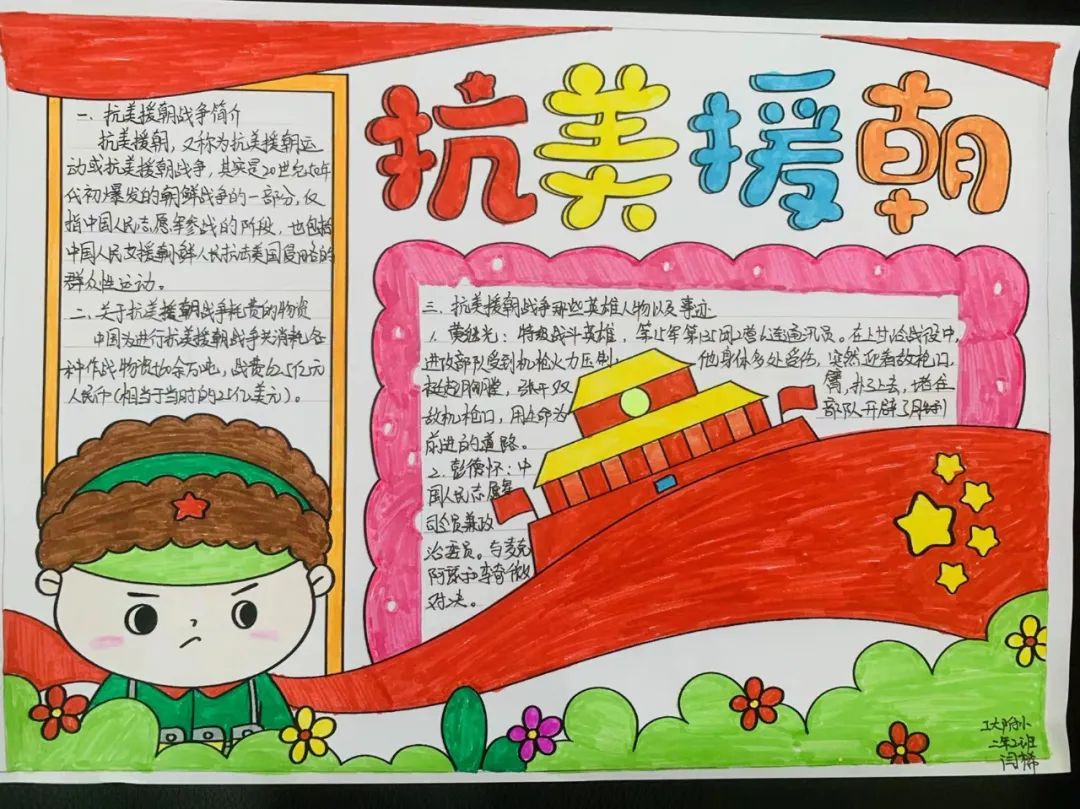 抗美援朝
一、抗美援朝战争简介
抗美援朝，又称为抗美援朝运
动或抗美援朝战争，其实是20世纪50年
代初爆发的朝鲜战争的一部分，仅
指中国人民志愿军参战的阶段，也包括
中国人民支援朝鲜人民抗击美国侵略的
群众性运动。
二、关于抗美援朝战争耗费的物资
中国为进行抗美援朝战争共消耗各
种作战物资560余万吨，战费62.5亿元
人民币（相当于当时的25亿美元）。
三、抗美援朝战争那些英雄人物以及事迹
1、黄继光：特级战斗英雄，第15军第135团2营6连通讯员。在上甘岭战役中，
进攻部队受到机枪火力压制， 他身体多处受伤，突然迎着敌枪口，
挺起胸膛，张开双 臂，扑了上去，堵住
敌机枪口，用生命为 部队开辟了胜利
前进的道路。
2、彭德怀：中
国人民志愿军
司令员兼政
治委员。与麦克
阿瑟、李奇微
对决。
工大附小
二年2班
闫